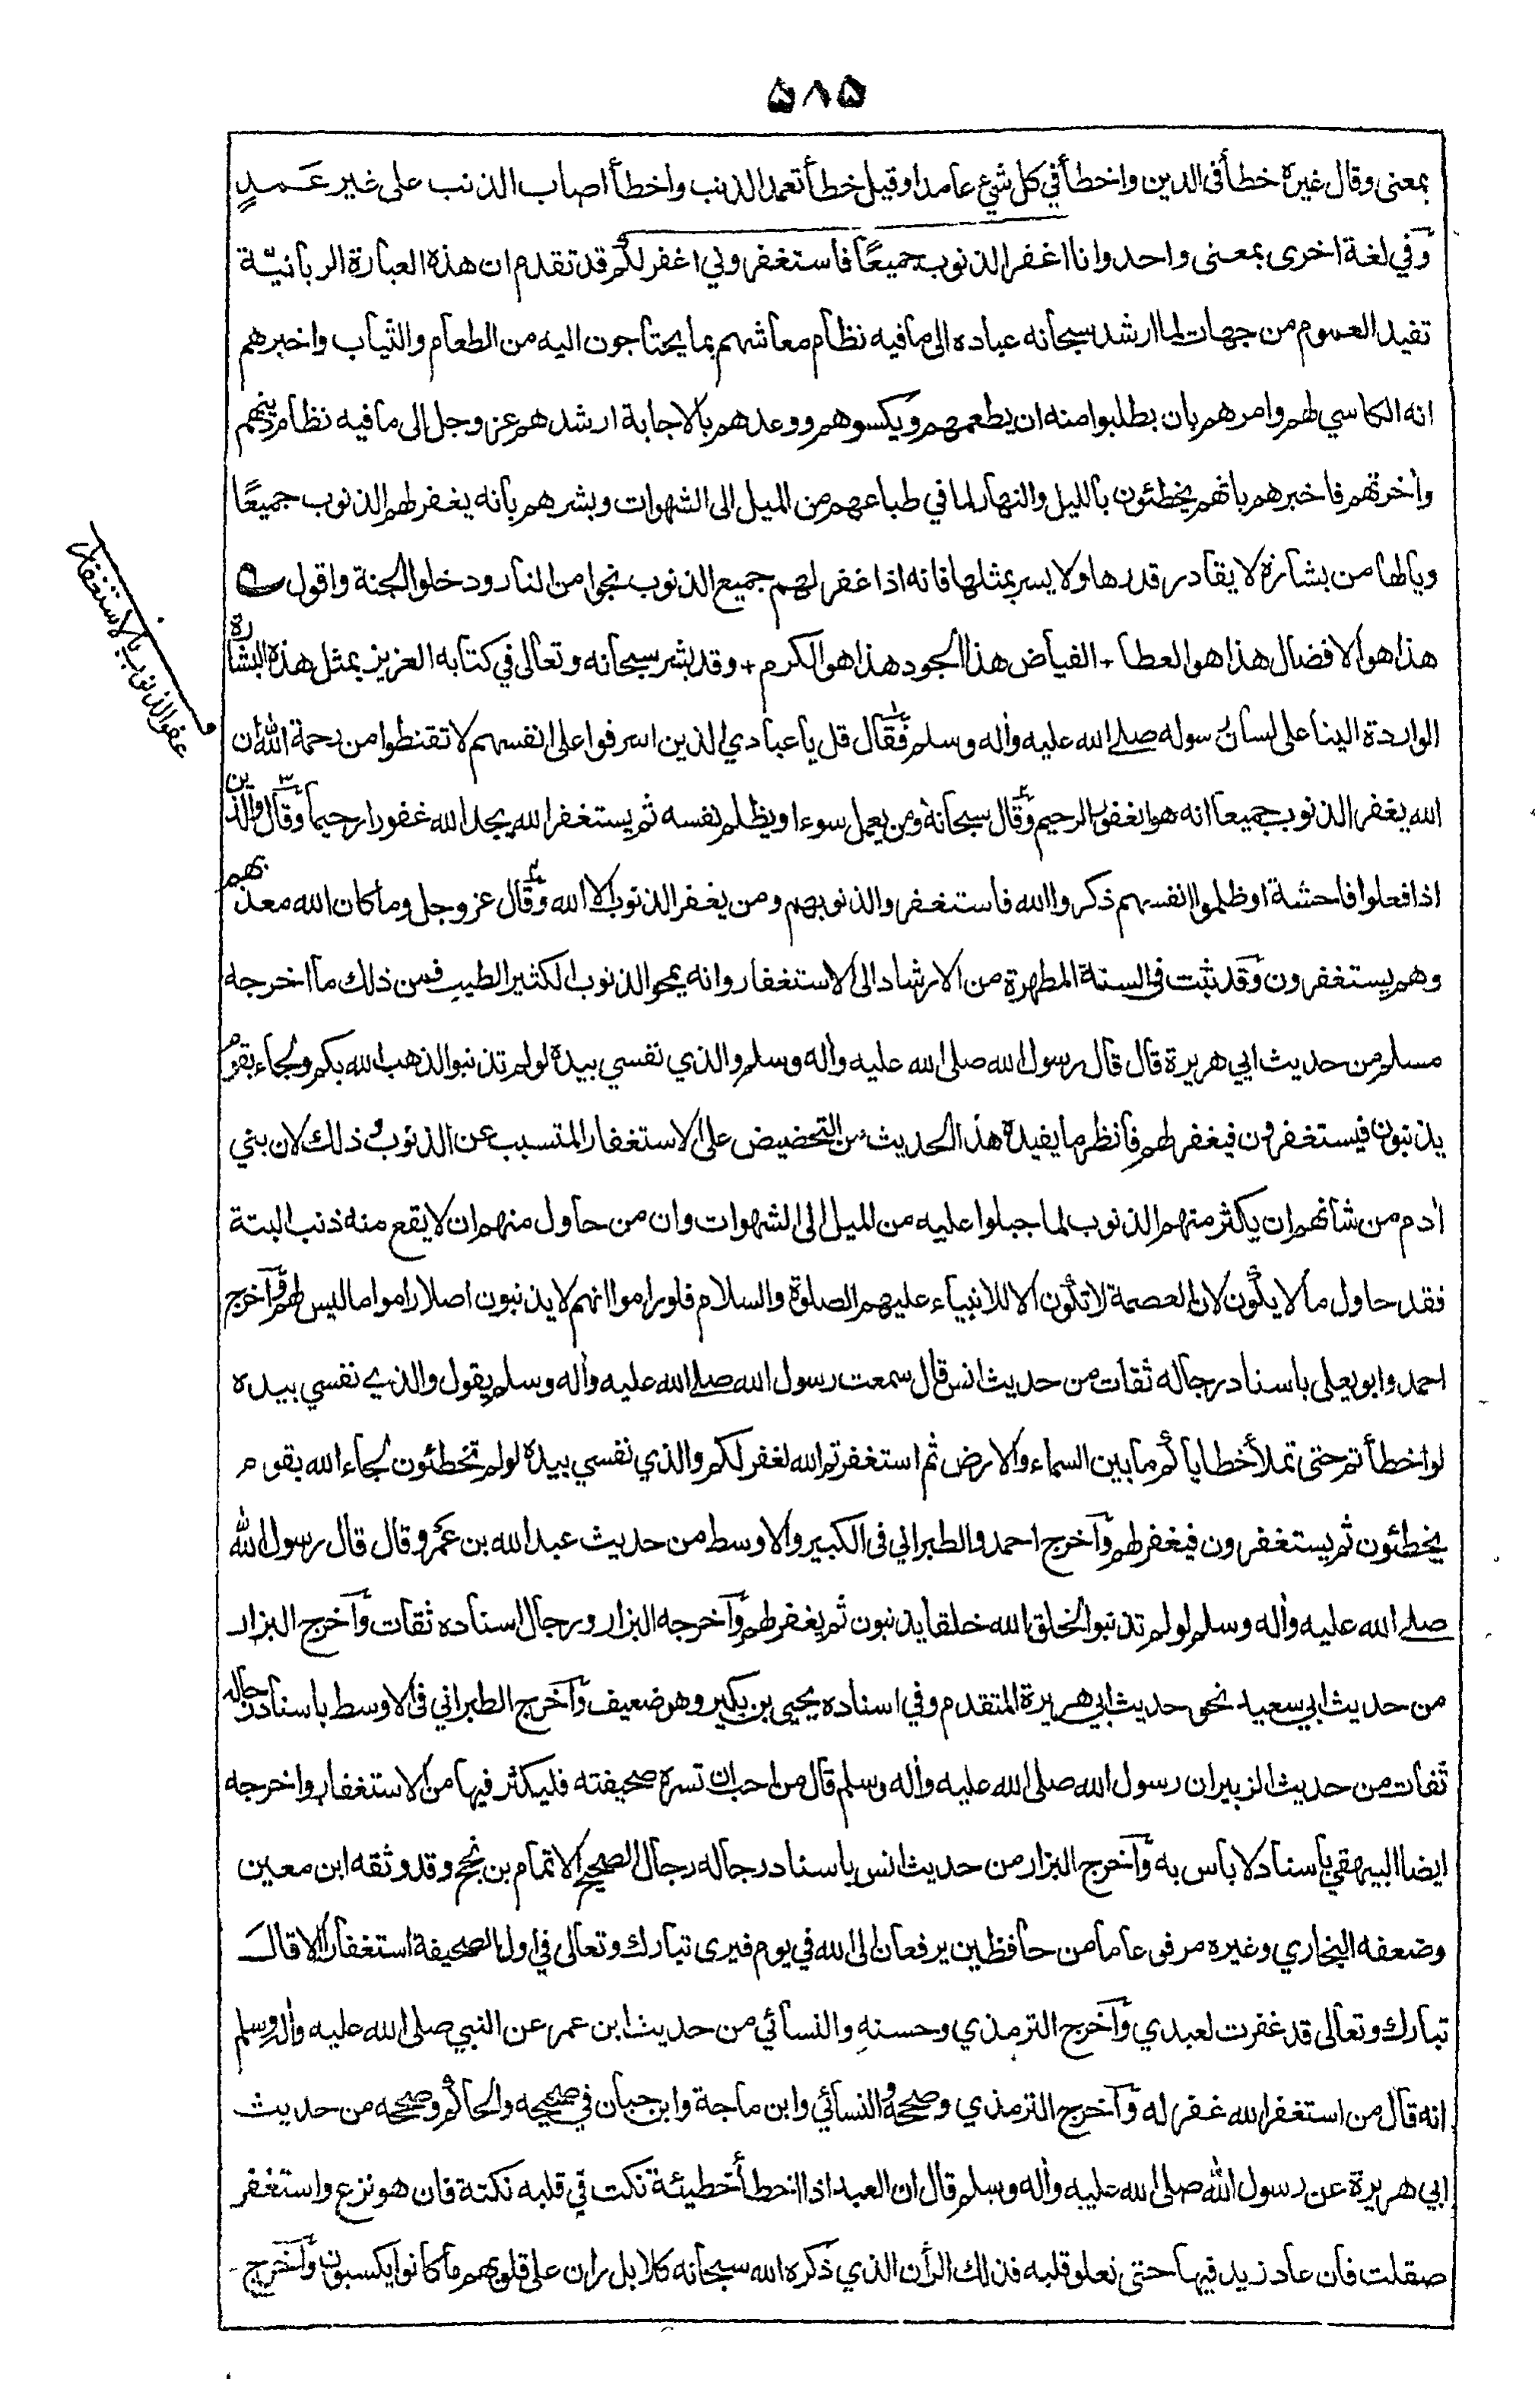 ۵۸۵
بمعنى وقال غيره خطأ فى الدين واخطأ في كل شيء عامدا وقيل خطأ تعمد الذنب واخطأ اصاب الذنب على غير عمدٍ
وفي لغة اخرى بمعنى واحد وانا اغفر الذنوب جميعًا فاستغفروني اغفر لكم قد تقدم ان هذه العبارة الربانيّة
تفيد العموم من جهات لما ارشد سبحانه عباده الى ما فيه نظام معاشهم بما يحتاجون اليه من الطعام والثياب واخبرهم
انه الكاسي لهم وامرهم بان يطلبوا منه ان يطعمهم ويكسوهم ووعدهم بالاجابة ارشدهم عز وجل الى ما فيه نظام دينهم
واخرتهم فاخبرهم بانهم يخطئون بالليل والنهار لما في طباعهم من الميل الى الشهوات وبشرهم بانه يغفر لهم الذنوب جميعًا
ويالها من بشارة لا يقادر قدرها ولا يسر بمثلها فانه اذا غفر لهم جميع الذنوب نجوا من النار ودخلوا الجنة واقول
هذا هو الافضال هذا هو العطا + الفياض هذا الجود هذا هو الكرم + وقد بشر سبحانه وتعالى في كتابه العزيز بمثل هذه البشارة
الواردة الينا على لسان رسوله صلى الله عليه واٰله وسلم فقال قل يا عبادي الذين اسرفوا على انفسهم لا تقنطوا من رحمة الله ان
الله يغفر الذنوب جميعا انه هو الغفور الرحيم وقال سبحانه ومن يعمل سوءا او يظلم نفسه ثم يستغفر الله يجد الله غفورا رحيما وقال والذين
اذا فعلوا فاحشة او ظلموا انفسهم ذكروا الله فاستغفروا لذنوبهم ومن يغفر الذنوب الا الله وقال عز وجل وما كان الله معذبهم
وهم يستغفرون وقد ثبت فى السنة المطهرة من الارشاد الى الاستغفار وانه يمحو الذنوب الكثير الطيب فمن ذلك ما اخرجه
مسلم من حديث ابي هريرة قال قال رسول الله صلى الله عليه واٰله وسلم والذي نفسي بيده لو لم تذنبوا لذهب الله بكم ولجاء بقوم
يذنبون فيستغفرون فيغفر لهم فانظر ما يفيده هذا الحديث من التحضيض على الاستغفار المتسبب عن الذنوب وذلك لان بني
اٰدم من شانهم ان يكثر منهم الذنوب لما جبلوا عليه من الميل الى الشهوات وان من حاول منهم ان لا يقع منه ذنب البتة
فقد حاول ما لا يكون لان العصمة لا تكون الا للانبياء عليهم الصلوة والسلام فلو راموا انهم لا يذنبون اصلا راموا ما ليس لهم واخرج
احمد وابو يعلى باسناد رجاله ثقات من حديث انس قال سمعت رسول الله صلى الله عليه واٰله وسلم يقول والذي نفسي بيده
لو اخطأتم حتى تملأ خطاياكم ما بين السماء والارض ثم استغفرتم الله لغفر لكم والذي نفسي بيده لو لم تخطئون لجاء الله بقوم
يخطئون ثم يستغفرون فيغفر لهم واخرج احمد والطبراني فى الكبير والاوسط من حديث عبد الله بن عمرو قال قال رسول الله
صلى الله عليه واٰله وسلم لو لم تذنبوا لخلق الله خلقا يذنبون ثم يغفر لهم واخرجه البزار ورجال اسناده ثقات واخرج البزار
من حديث ابي سعيد نحو حديث ابي هريرة المتقدم وفي اسناده يحيى بن بكير وهو ضعيف واخرج الطبراني فى الاوسط باسناد رجاله
ثقات من حديث الزبير ان رسول الله صلى الله عليه واٰله وسلم قال من احب ان تسره صحيفته فليكثر فيها من الاستغفار واخرجه
ايضا البيهقي باسناد لا باس به واخرج البزار من حديث انس باسناد رجاله رجال الصحيح الا تمام بن نجيح وقد وثقه ابن معين
وضعفه البخاري وغيره مرفوعا ما من حافظين يرفعان الى الله في يوم فيرى تبارك وتعالى في اول الصحيفة استغفارا الا قال
تبارك وتعالى قد غفرت لعبدي واخرج الترمذي وحسنه والنسائي من حديث ابن عمر عن النبي صلى الله عليه واٰله وسلم
انه قال من استغفر الله غفر له واخرج الترمذي وصححه والنسائي وابن ماجة وابن حبان في صحيحه والحاكم وصححه من حديث
ابي هريرة عن رسول الله صلى الله عليه واٰله وسلم قال ان العبد اذا اخطأ خطيئة نكت في قلبه نكتة فان هو نزع واستغفر
صقلت فان عاد زيد فيها حتى تعلو قلبه فذلك الرأن الذي ذكره الله سبحانه كلا بل ران على قلوبهم ما كانوا يكسبون واخرج
عفو الذنوب بالاستغفار